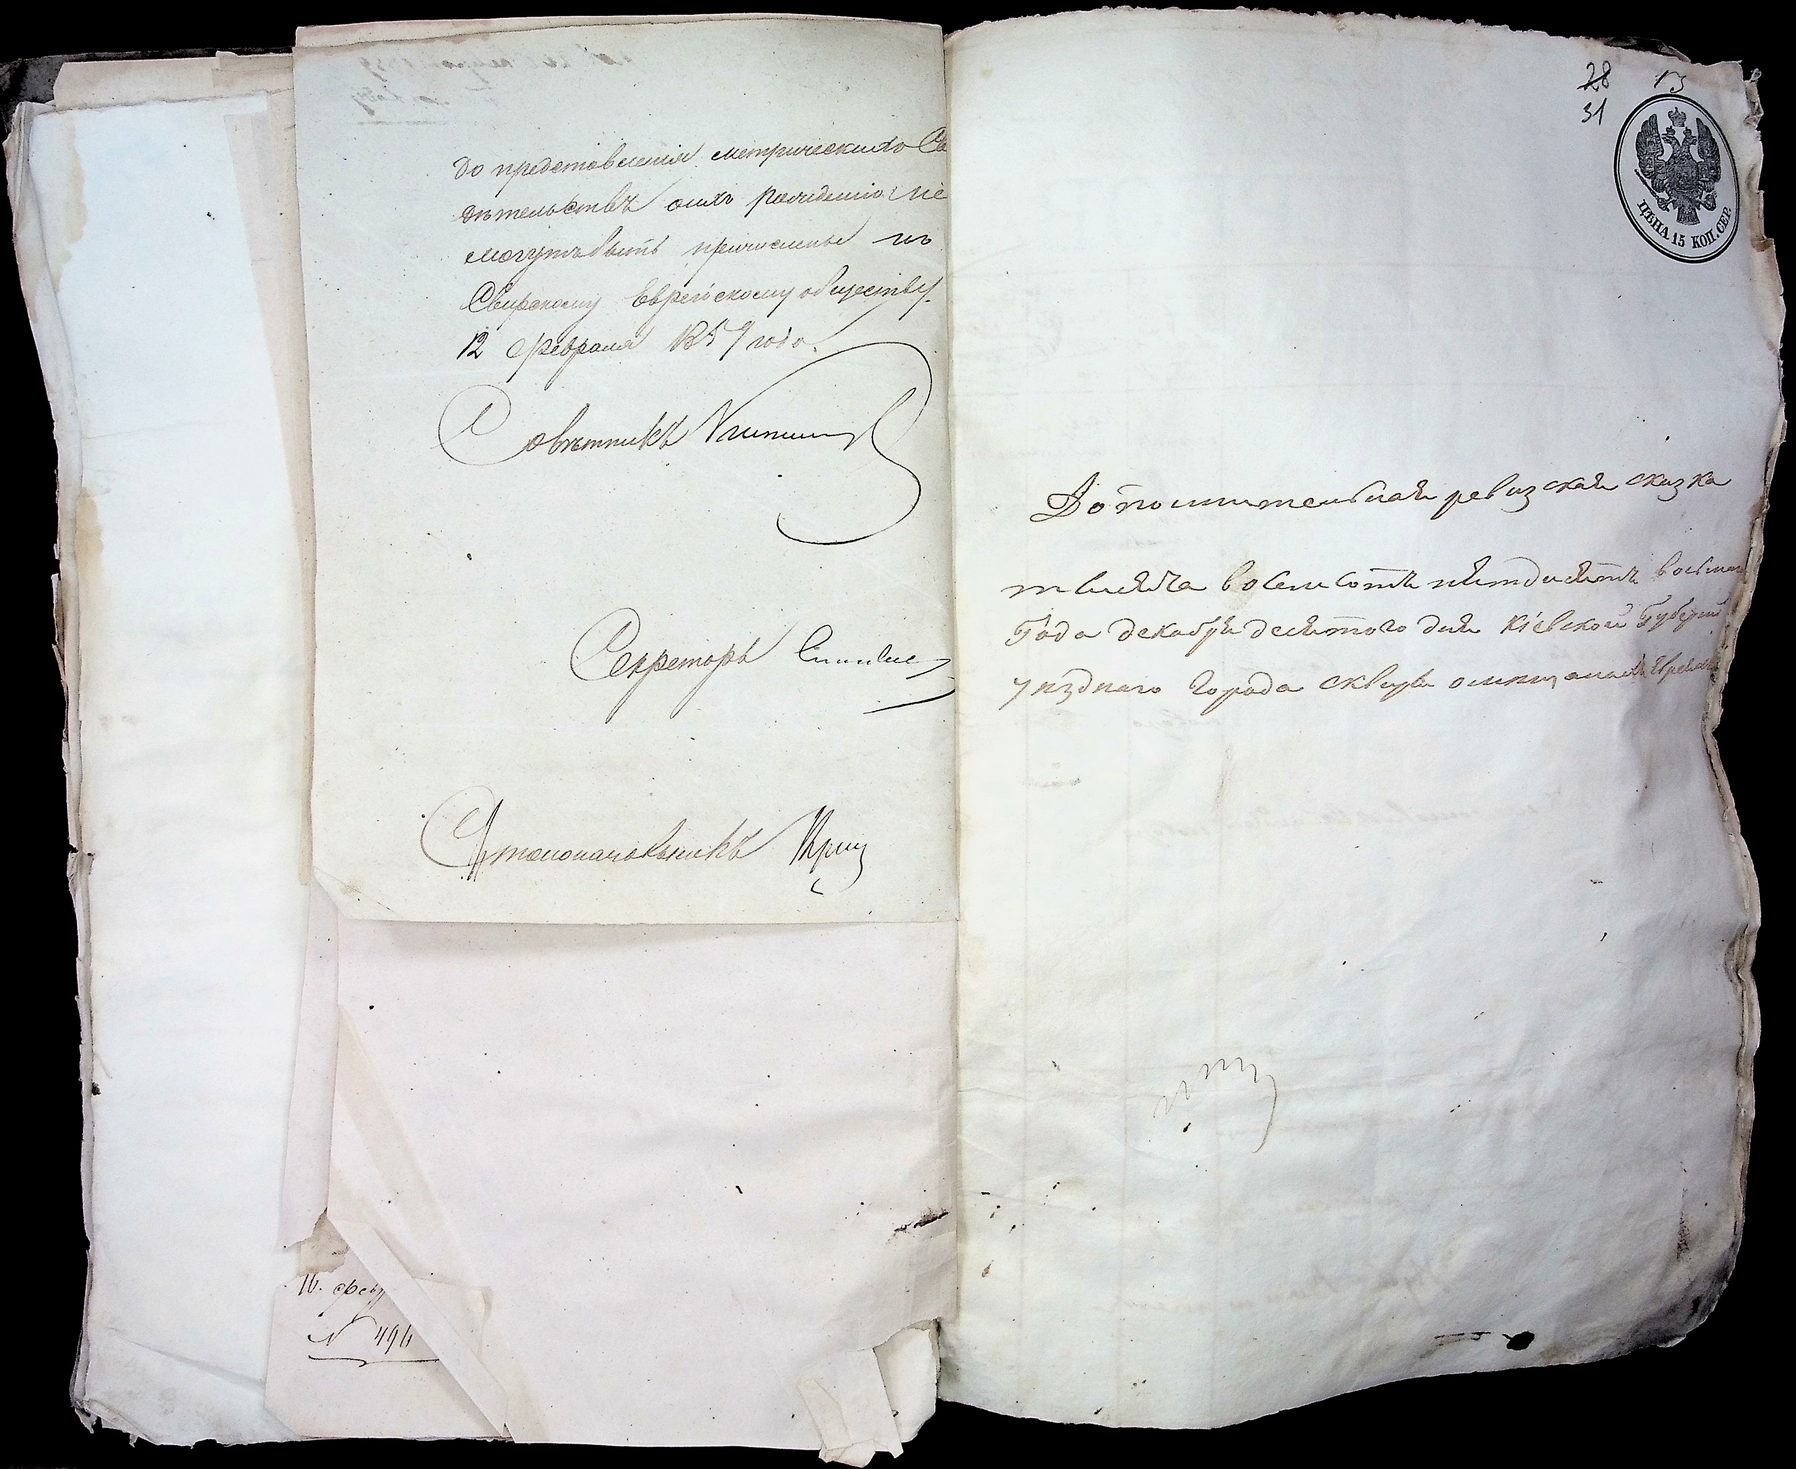 до представленія метрическихъ Сви
дѣтельствъ о ихъ рожденіи не
могутъ быть причислены къ
Сквирскому Еврейскому обществу.
12 февраля 1859 года.
Совѣтникъ
Секретарь
Столоначальникъ
16. февр
N 494
28 13
31
ЦѢНА 15 КОП. СЕР.
Дополнительная ревизская сказка
тысяча восемсотъ пятдесятъ восьмаго
Года декабря десятого дня Кіевской Губерніи
уѣзднаго города Сквиры о мѣщанахъ Евреяхъ